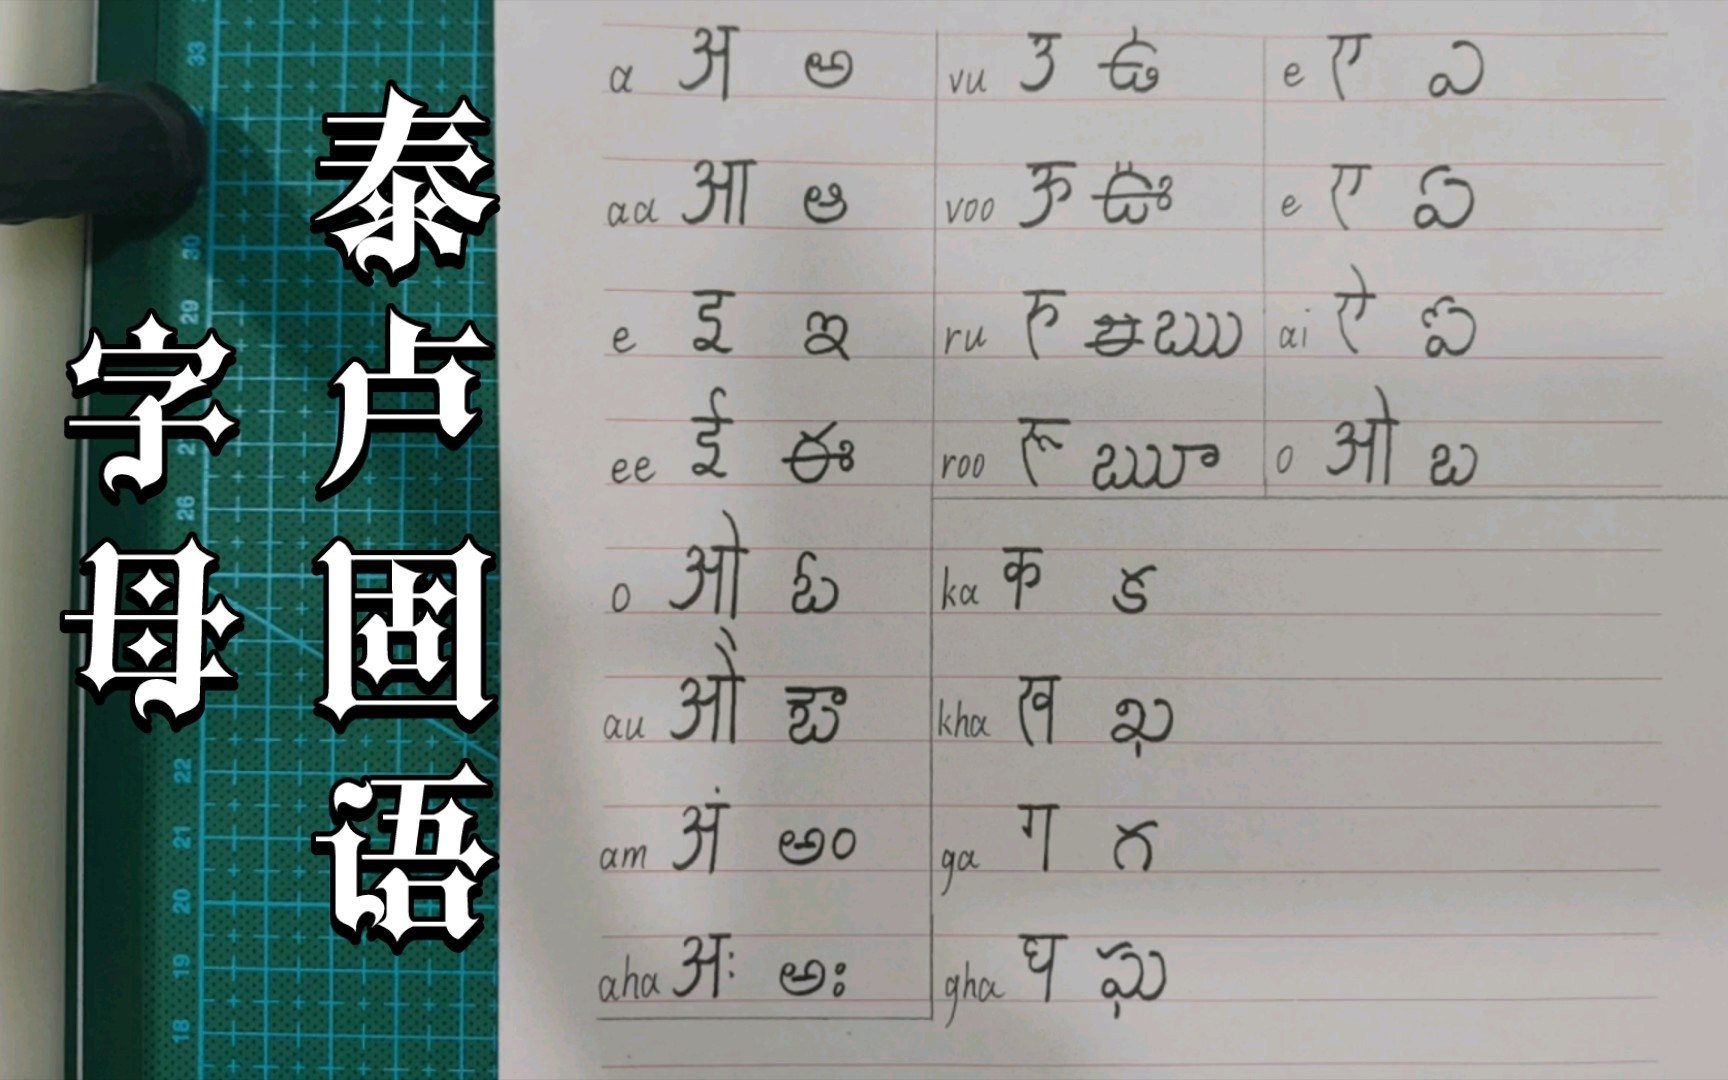 泰卢固语
字母
33
30
29
26
22
21
20
19
18
a अ అ vu उ ఉ e ए ఎ
aa आ ఆ voo ऊ ఊ e ए ఏ
e इ ఇ ru रु ఋ ai ऐ ఐ
ee ई ఈ roo रू ౠ o ओ ఒ
o ओ ఓ ka क క
au औ ఔ kha ख ఖ
am अं అం ga ग గ
aha अः అః gha घ ఘ